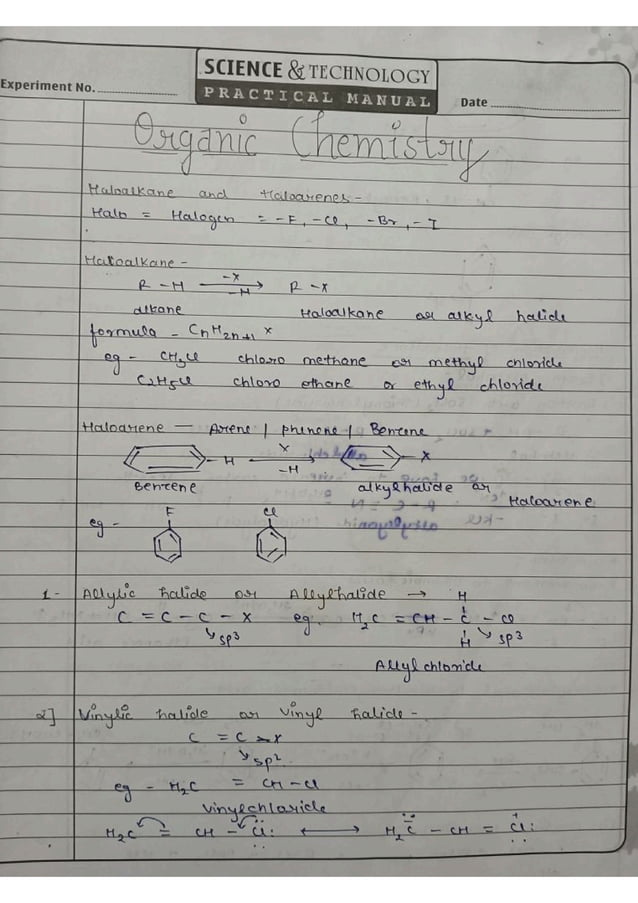 SCIENCE & TECHNOLOGY
PRACTICAL MANUAL
Experiment No.
Date
Organic Chemistry
Haloalkane and Haloarenes -
Halo = Halogen = -F, -Cl, -Br, -I
Haloalkane -
R - H —-X/-H→ R - X
alkane Haloalkane or alkyl halide
formula - CnH2n+1 X
eg - CH3Cl chloro methane or methyl chloride
C2H5Cl chloro ethane or ethyl chloride
Haloarene — Arene / phenene / Benzene
- H —X/-H→ - X
Benzene alkylhalide or Haloarene
eg - F Cl
1- Allylic halide or Allylhalide → H
C = C - C - X eg. H2C = CH - C - Cl
sp3 H sp3
Allyl chloride
2] Vinylic halide or vinyl halide -
C = C - X
sp2
eg - H2C = CH - Cl
vinylchloride
H2C = CH - Cl: ↔ H2C - CH = Cl: